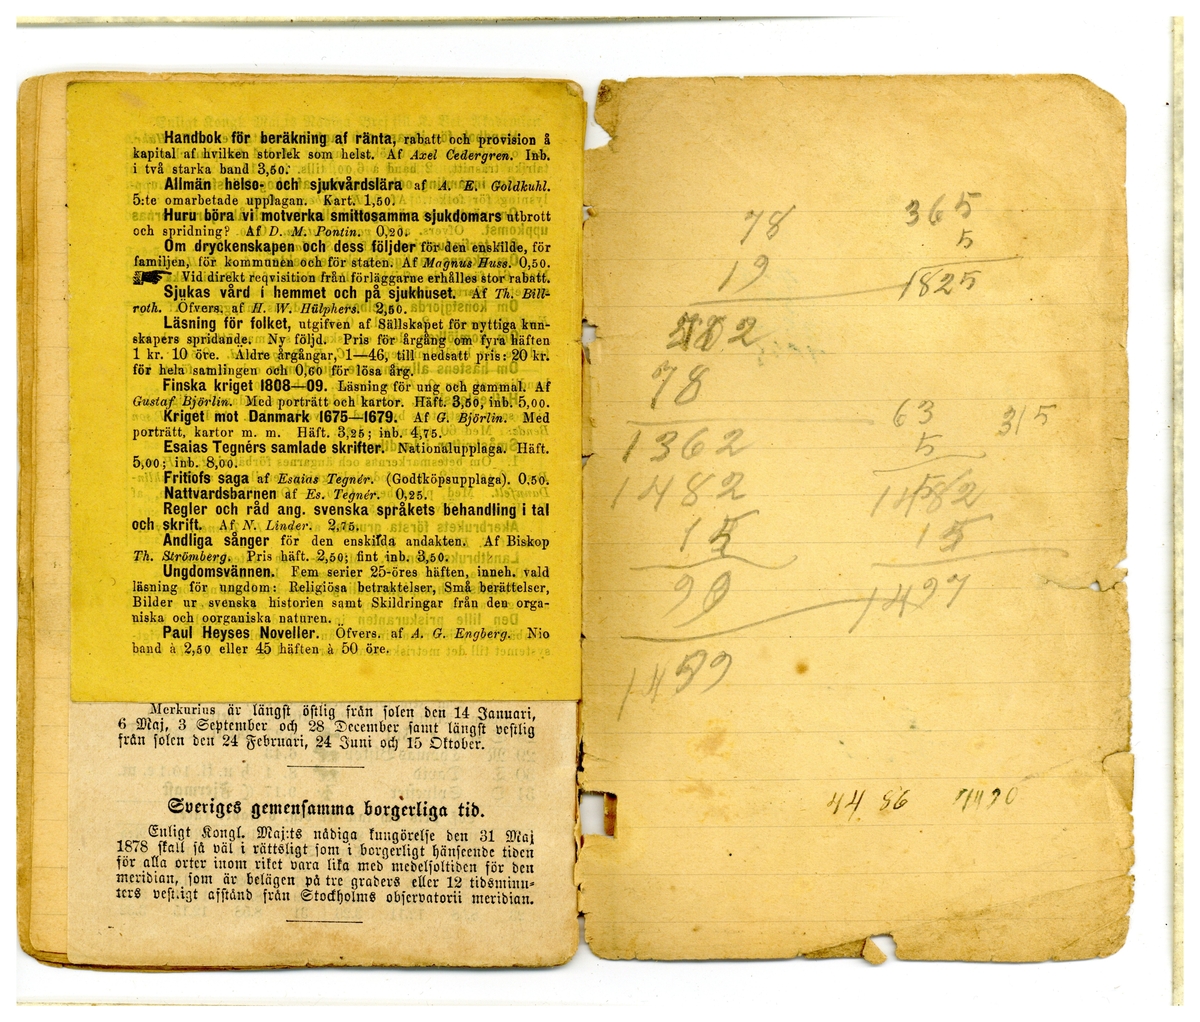 Handbok för beräkning af ränta, rabatt och provision å
kapital af hvilken storlek som helst. Af Axel Cedergren. Inb.
i två starka band 3,50.
Allmän helso- och sjukvårdslära af A. E. Goldkuhl.
5:te omarbetade upplagan. Kart. 1,50.
Huru böra vi motverka smittosamma sjukdomars utbrott
och spridning? Af D. M. Pontin. 0,20.
Om dryckenskapen och dess följder för den enskilde, för
familjen, för kommunen och för staten. Af Magnus Huss. 0,50.
Vid direkt reqvisition från förläggarne erhålles stor rabatt.
Sjukas vård i hemmet och på sjukhuset. Af Th. Bill-
roth. Öfvers. af H. W. Hülphers. 2,50.
Läsning för folket, utgifven af Sällskapet för nyttiga kun-
skapers spridande. Ny följd. Pris för årgång om fyra häften
1 kr. 10 öre. Äldre årgångar, 1—46, till nedsatt pris: 20 kr.
för hela samlingen och 0,60 för lösa årg.
Finska kriget 1808—09. Läsning för ung och gammal. Af
Gustaf Björlin. Med porträtt och kartor. Häft. 3,50, inb. 5,00.
Kriget mot Danmark 1675—1679. Af G. Björlin. Med
porträtt, kartor m. m. Häft. 3,25; inb. 4,75.
Esaias Tegnérs samlade skrifter. Nationalupplaga. Häft.
5,00; inb. 8,00.
Fritiofs saga af Esaias Tegnér. (Godtköpsupplaga). 0,50.
Nattvardsbarnen af Es. Tegnér. 0,25.
Regler och råd ang. svenska språkets behandling i tal
och skrift. Af N. Linder. 2,75.
Andliga sånger för den enskilda andakten. Af Biskop
Th. Strömberg. Pris häft. 2,50; fint inb. 3,50.
Ungdomsvännen. Fem serier 25-öres häften, inneh. vald
läsning för ungdom: Religiösa betraktelser, Små berättelser,
Bilder ur svenska historien samt Skildringar från den orga-
niska och oorganiska naturen.
Paul Heyses Noveller. Öfvers. af A. G. Engberg. Nio
band à 2,50 eller 45 häften à 50 öre.
Merkurius är längst östlig från solen den 14 Januari,
6 Maj, 3 September och 28 December samt längst vestlig
från solen den 24 Februari, 24 Juni och 15 Oktober.
Sveriges gemensamma borgerliga tid.
Enligt Kongl. Maj:ts nådiga kungörelse den 31 Maj
1878 skall så väl i rättsligt som i borgerligt hänseende tiden
för alla orter inom riket vara lika med medelsoltiden för den
meridian, som är belägen på tre graders eller 12 tidsminu-
ters vestligt afstånd från Stockholms observatorii meridian.
78
19
702
78
1362
1482
15
90
1499
365
5
1825
63
5
315
1482
15
1497
44 86